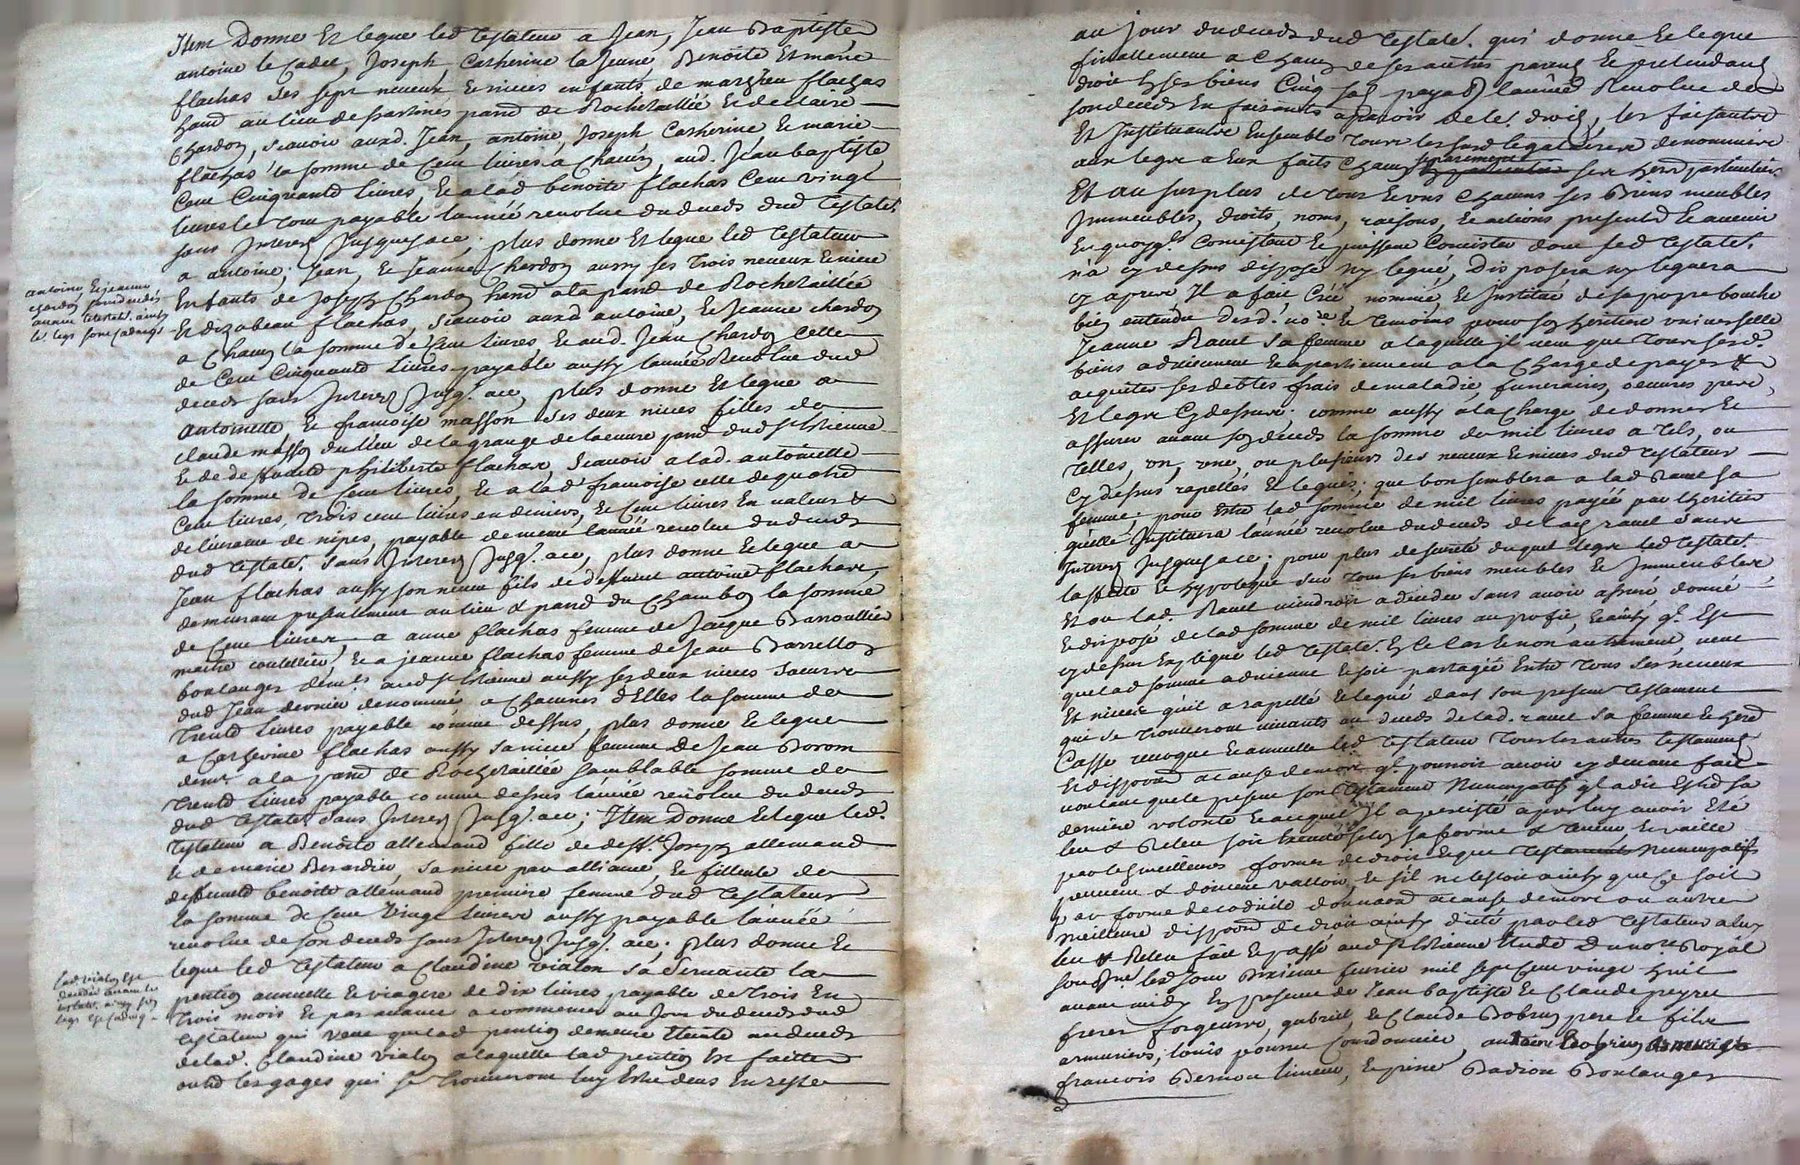 Item Donne Et legue led testateur a Jean, Jean Baptiste
antoine le Cadet, Joseph Catherine la Jeune, Benoite Et marie
flachas ses sept neveux Et nieces enfants de mathieu flachas
hand au lieu de partines parr.d de Rochetaillée Et de claire
Chardon, scavoir aux d. Jean, antoine, Joseph Catherine Et marie
flachas la somme de Cent livres a Chacun, aud. Jean baptiste
Cent Cinquante livres, Et a lad. benoite flachas Cent vingt
livres le tout payable l'année revolue du deceds dud testat.r
sans Interest Jusques a ce, plus donne Et legue led testateur
a antoine, Jean, Et Jeanne Chardon aussy ses trois neveux Et niece
Enfants de Joseph Chardon hand a la parr.d de Rochetaillée
Et d'izabeau flachas, scavoir aux d antoine, Et Jeanne chardon
a Chacun la somme de Cent livres Et aud. Jean Chardon Celle
de Cent Cinquante Livres payable aussy l'année Revolue dud
deceds sans Interest Jusq.s a ce, plus donne Et legue a
antoinette Et francoise masson ses deux nieces filles de
claude masson du lieu de la grange de l'oeuvre parr.d dud St Etienne
Et de deffuncte philiberte flachas, scavoir a lad. antoinette
la somme de Cent livres, Et a lad francoise celle de quatre
Cent livres, trois cent livres en deniers, Et Cent livres En valeur &
delivrance de nipes, payable de meme l'année revolue du deceds
dud testat.r sans Interest Jusq.s a ce, plus donne Et legue a
Jean flachas aussy son neveu fils de deffunt antoine flachas,
demeurant presentement au lieu & parr.d du Chambon la somme
de Cent livres a anne flachas femme de Jacque Banoullier
maitre coutellier, Et a jeanne flachas femme de Jean Barrellon
boulanger dem.t aud St Etienne aussy ses deux nieces soeurs
dud Jean dernier denommé a Chacunes d'Elles la somme de
Trente Livres payable comme dessus, plus donne Et legue
a Catherine flachas aussy sa niece femme de Jean Borom
dem.t a la parr.d de Rochetaillée semblable somme de
Trente Livres payable comme dessus l'année revolue du deceds
dud testat.r sans Interest Jusq.s a ce; Item Donne Et legue led.
testateur a Benoite allemand fille de deff.t Joseph allemand
Et de marie Berardier, sa niece par alliance, Et fillieule de
deffuncte benoite allemand premiere femme dud testateur
la somme de Cent Vingt Livres aussy payable l'année
revolue de son deceds sans Interest Jusq.s a ce; plus donne Et
legue led testateur a Claudine vialon sa servante la
pention annuelle Et viagere de dix livres payable de trois En
trois mois Et par advance a commencer au Jour du deceds dud
testateur qui veut que lad pention demeure Eteinte au deceds
de lad. Claudine vialon a laquelle lad pention Est faitte
outre les gages qui se trouveront luy Estre deus En reste
antoine Et jeanne
chardon sont decedés
avant le testat.r ainsy
le legs sont caducqs
lad. vialon Est
decedée avant le
testat.r ainsy son
legs Est caducq.
au Jour du deceds dud testat.r qui donne Et legue
finallement a Chacun de ses autres parents Et pretendants
droit En ses biens Cinq sols payables l'année Revolue de
son deceds En faisants apparoir de les. droits, les faisantes
Et Instituantes Ensemble tous les surd legataires denommés
aux legs a Eux faits Chacun separement ses her.s particuliers
Et au surplus de tous Et uns Chacuns ses Biens meubles
Immeubles, droits, noms, raisons, Et actions presents Et avenir
En quoyq.s Consistent Et puissent Concister dont led testat.r
n'a cy dessus disposé ny legué, disposera ny leguera
cy apres Il a fait Créé, nommé, Et Institué de sa propre bouche
bien entendue desd. no.re Et temoins pour son heritiere universelle
Jeanne Ravel sa femme a laquelle il veut que tous sesd.
biens adviennent Et apartiennent a la Charge de payer &
acquitter ses debtes frais de maladie, funeraires, oeuvres pies,
Et legs Cy dessus, comme aussy a la charge de donner Et
assurer avant son deceds la somme de mil livres a tels, ou
telles, un, une, ou plusieurs des neveux Et nieces dud testateur
Cy dessus rapellés Et legués, que bon semblera a lad Ravel sa
femme, pour Estre lad somme de mil livres payée par l'heritier
qu'elle Instituera l'année revolue du deceds de lad ravel sans
Interest Jusques a ce; pour plus de sureté duquel legs led testat.r
laffecte Et hypoteque sur tous ses biens meubles Et Immeubles
Et ou lad. Ravel viendroit a deceder sans avoir assuré donné
Et disposé de lad somme de mil livres au profit, Et ainsy q.l Est
cy dessus Expliqué led testat.r En Ce Cas Et non autrement, veut
que lad somme advienne Et soit partagée Entre tous ses neveux
Et nieces qu'il a rapellé Et legué dans son present testament
qui se trouveront vivants au deceds de lad. ravel sa femme Et her.e
Casse revoque Et annulle led testateur tous les autres testaments
Et disposons a cause de mort q.l pourroit avoir cy devant fait
voulant que le present son testament Nuncupatif q.l a dit Estre sa
derniere volonté Et auquel Il a persisté apres luy avoir Eté
leu & Releu soit Executé selon sa forme & teneur Et vaille
par les meilleures formes de droit Et que testaments Nuncupatifs
peuvent & doivent valloir, Et s'il ne l'estoit ainsy que ce soit
par forme de codicile donnaon a cause de mort ou autre
meilleure disposon de droit ainsy dicté par led testateur a luy
leu & Releu fait Et passé aud St Etienne Etude Du no.re Royal
sousigné les Jour Dixieme fevrier mil sept Cent vingt huit
avant midy En presence de Jean baptiste Et Claude peyret
freres forgeurs, gabriel, Et Claude Bobrun pere Et fils
armuriers, louis pourret Cordonnier, antoine Bobrun armurier
francois Bernou limeur, Et pierre Badiou Boulanger